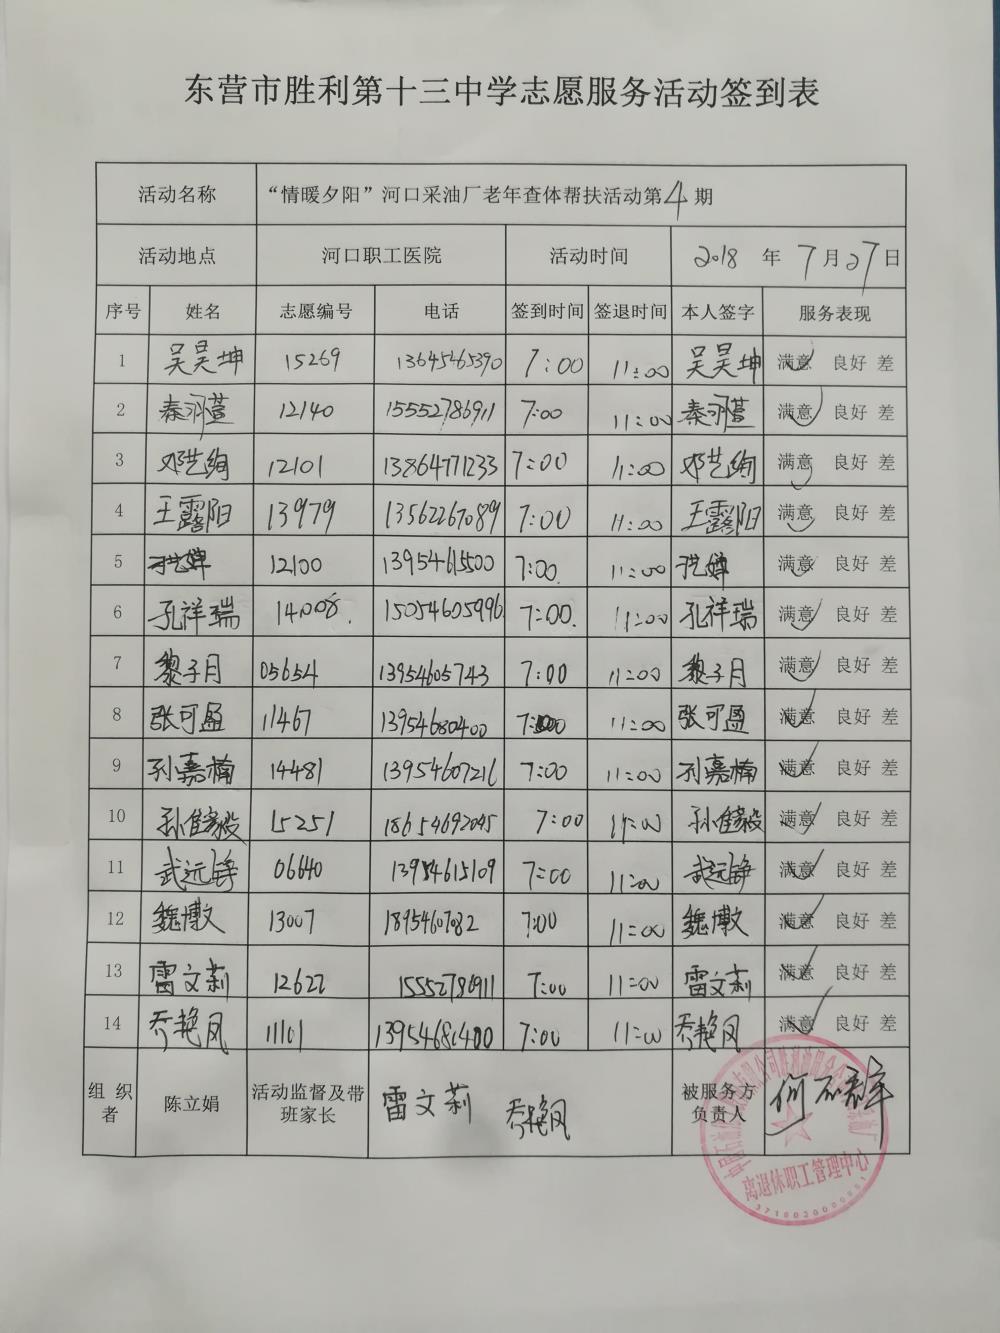 东营市胜利第十三中学志愿服务活动签到表
活动名称 “情暖夕阳”河口采油厂老年查体帮扶活动第4期
活动地点 河口职工医院 活动时间 2018 年 7月27日
序号 姓名 志愿编号 电话 签到时间 签退时间 本人签字 服务表现
1 吴昊坤 15269 13645465390 7:00 11:00 吴昊坤 满意 良好 差
2 秦羽萱 12140 15552786911 7:00 11:00 秦羽萱 满意 良好 差
3 邓艺绚 12101 13864771233 7:00 11:00 邓艺绚 满意 良好 差
4 王露阳 13979 13562267089 7:00 11:00 王露阳 满意 良好 差
5 12100 13954615500 7:00 11:00 满意 良好 差
6 孔祥瑞 14008 15054605996 7:00 11:00 孔祥瑞 满意 良好 差
7 黎子月 05654 13954605743 7:00 11:00 黎子月 满意 良好 差
8 张可盈 11467 13954680400 7:00 11:00 张可盈 满意 良好 差
9 孙嘉楠 14481 13954607216 7:00 11:00 孙嘉楠 满意 良好 差
10 15251 18654692045 7:00 11:00 满意 良好 差
11 武远铮 06640 13954615109 7:00 11:00 武远铮 满意 良好 差
12 魏博文 13007 18954607082 7:00 11:00 魏博文 满意 良好 差
13 雷文莉 12622 15552786911 7:00 11:00 雷文莉 满意 良好 差
14 乔艳凤 11101 13954680400 7:00 11:00 乔艳凤 满意 良好 差
组织者 陈立娟 活动监督及带班家长 雷文莉 乔艳凤 被服务方负责人
离退休职工管理中心